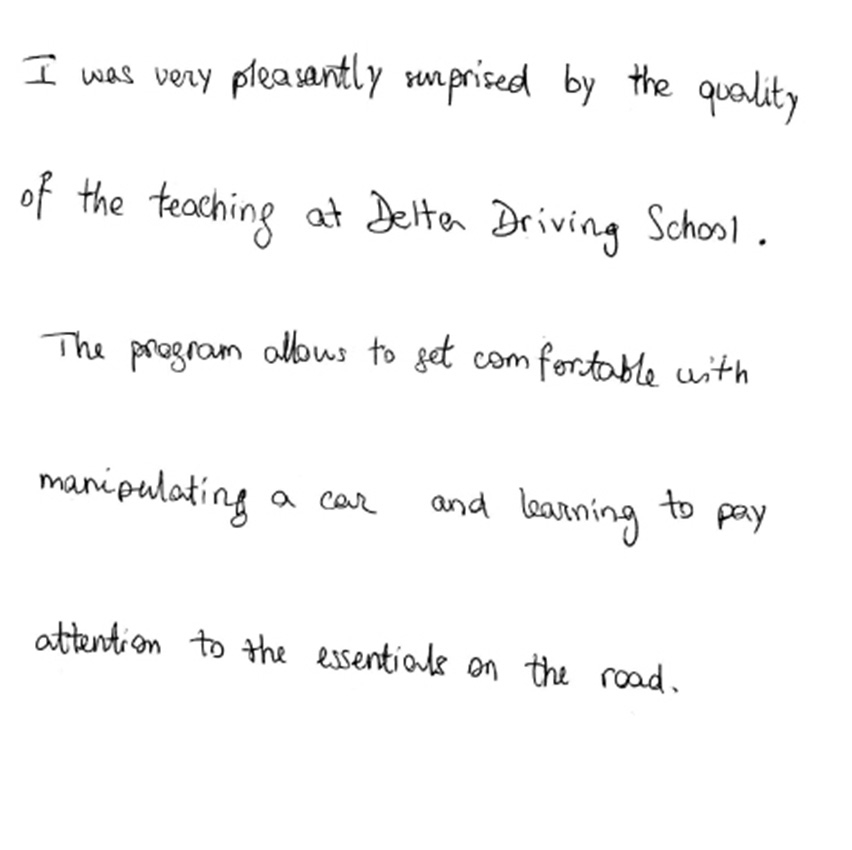 I was very pleasantly surprised by the quality
of the teaching at Delta Driving School.
The program allows to get comfortable with
manipulating a car and learning to pay
attention to the essentials on the road.